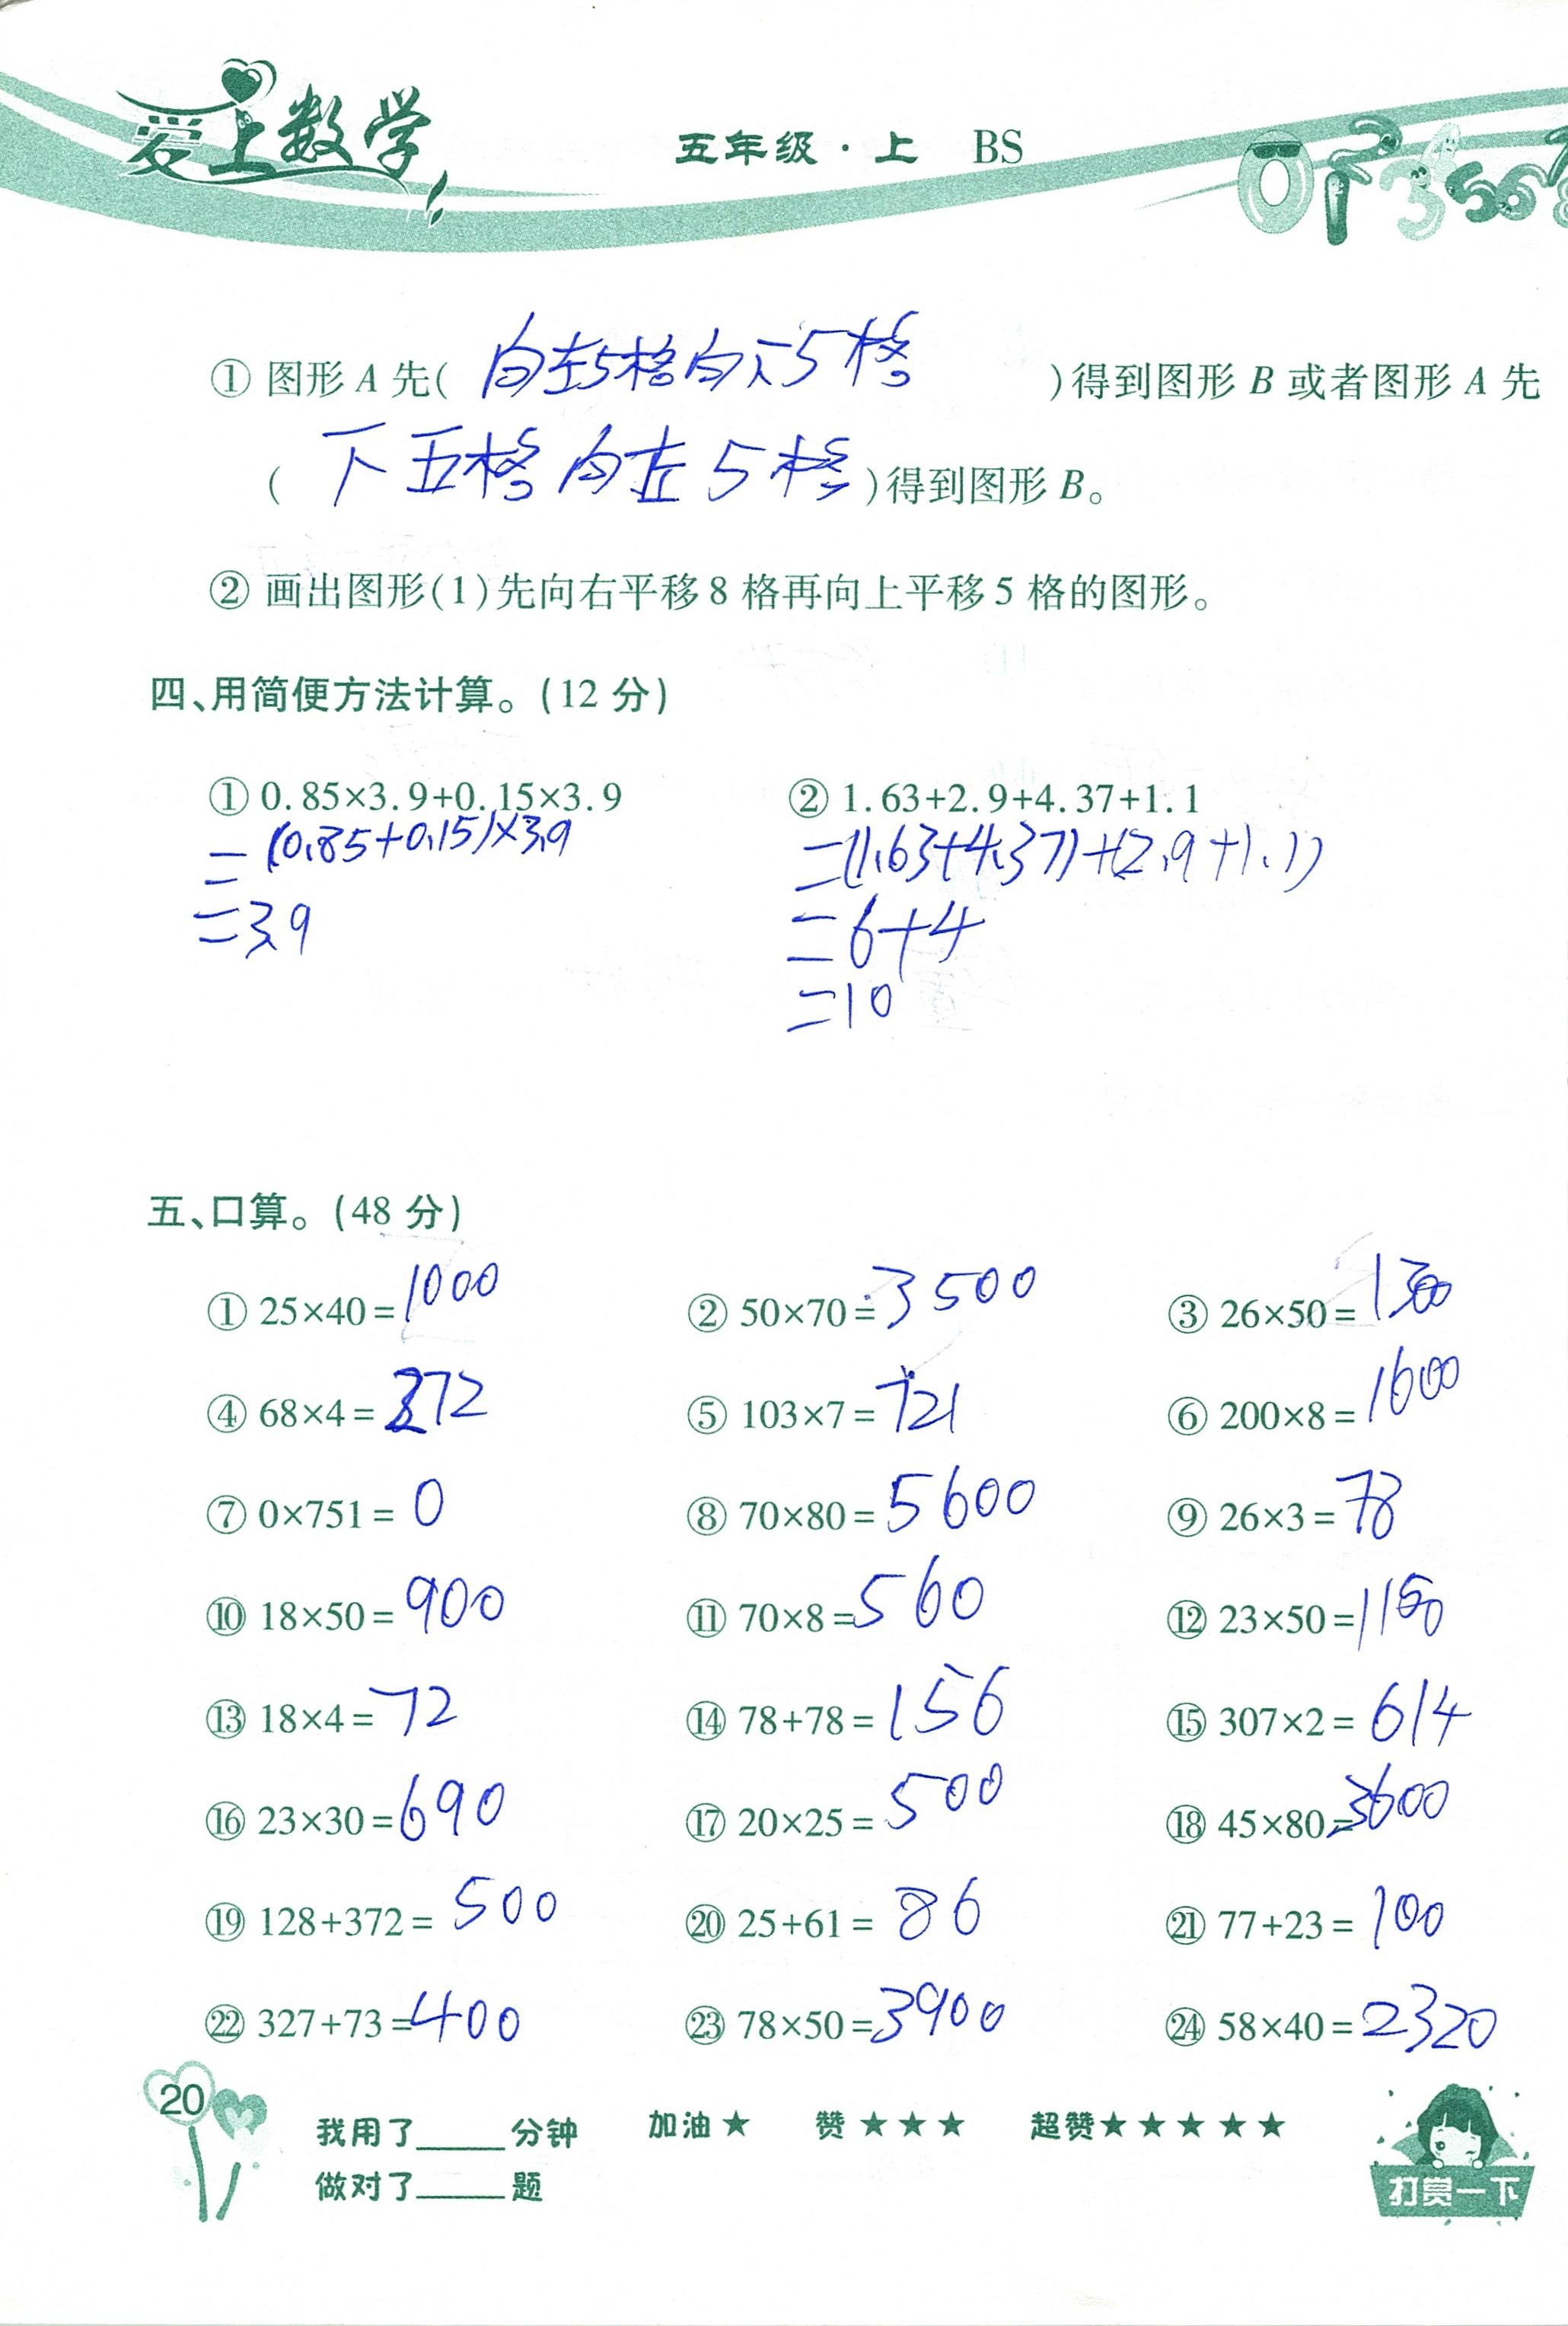 爱上数学
五年级·上 BS
① 图形 A 先( 向左5格向下5格 )得到图形 B 或者图形 A 先
( 下五格向左5格 )得到图形 B。
② 画出图形(1)先向右平移 8 格再向上平移 5 格的图形。
四、用简便方法计算。(12 分)
① 0.85×3.9+0.15×3.9 ② 1.63+2.9+4.37+1.1
=(0.85+0.15)×3.9 =(1.63+4.37)+(2.9+1.1)
=3.9 =6+4
=10
五、口算。(48 分)
① 25×40=1000 ② 50×70=3500 ③ 26×50=1300
④ 68×4=272 ⑤ 103×7=721 ⑥ 200×8=1600
⑦ 0×751=0 ⑧ 70×80=5600 ⑨ 26×3=78
⑩ 18×50=900 ⑪ 70×8=560 ⑫ 23×50=1150
⑬ 18×4=72 ⑭ 78+78=156 ⑮ 307×2=614
⑯ 23×30=690 ⑰ 20×25=500 ⑱ 45×80=3600
⑲ 128+372=500 ⑳ 25+61=86 ㉑ 77+23=100
㉒ 327+73=400 ㉓ 78×50=3900 ㉔ 58×40=2320
20
我用了_____分钟 加油★ 赞★★★ 超赞★★★★★
做对了_____题
打赏一下